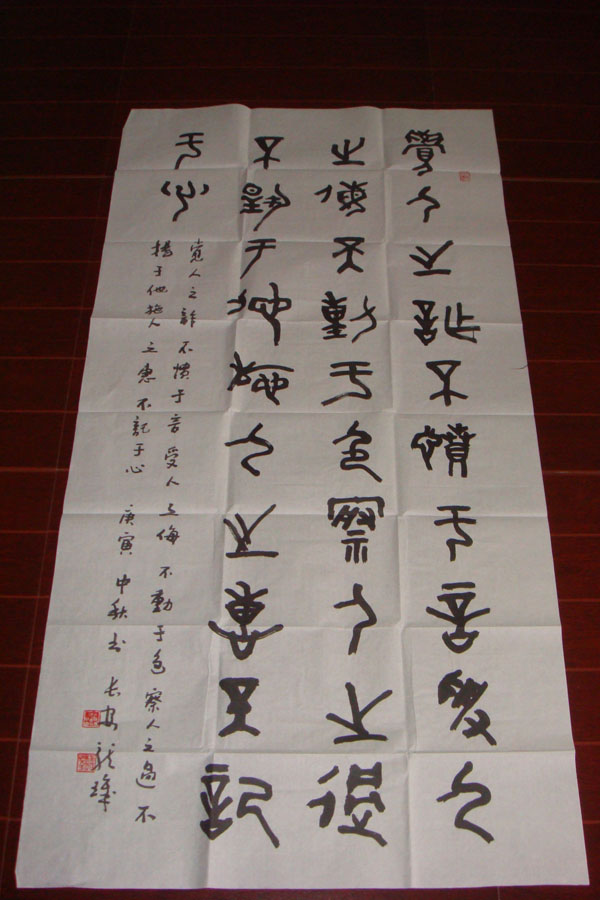 覺人之詐不憤于言受人
之侮不動于色察人之過
不揚于他施人之惠不記
于心
覚人之詐不憤于言受人之侮不動于色察人之過不
揚于他施人之惠不記于心 庚寅中秋书 长安